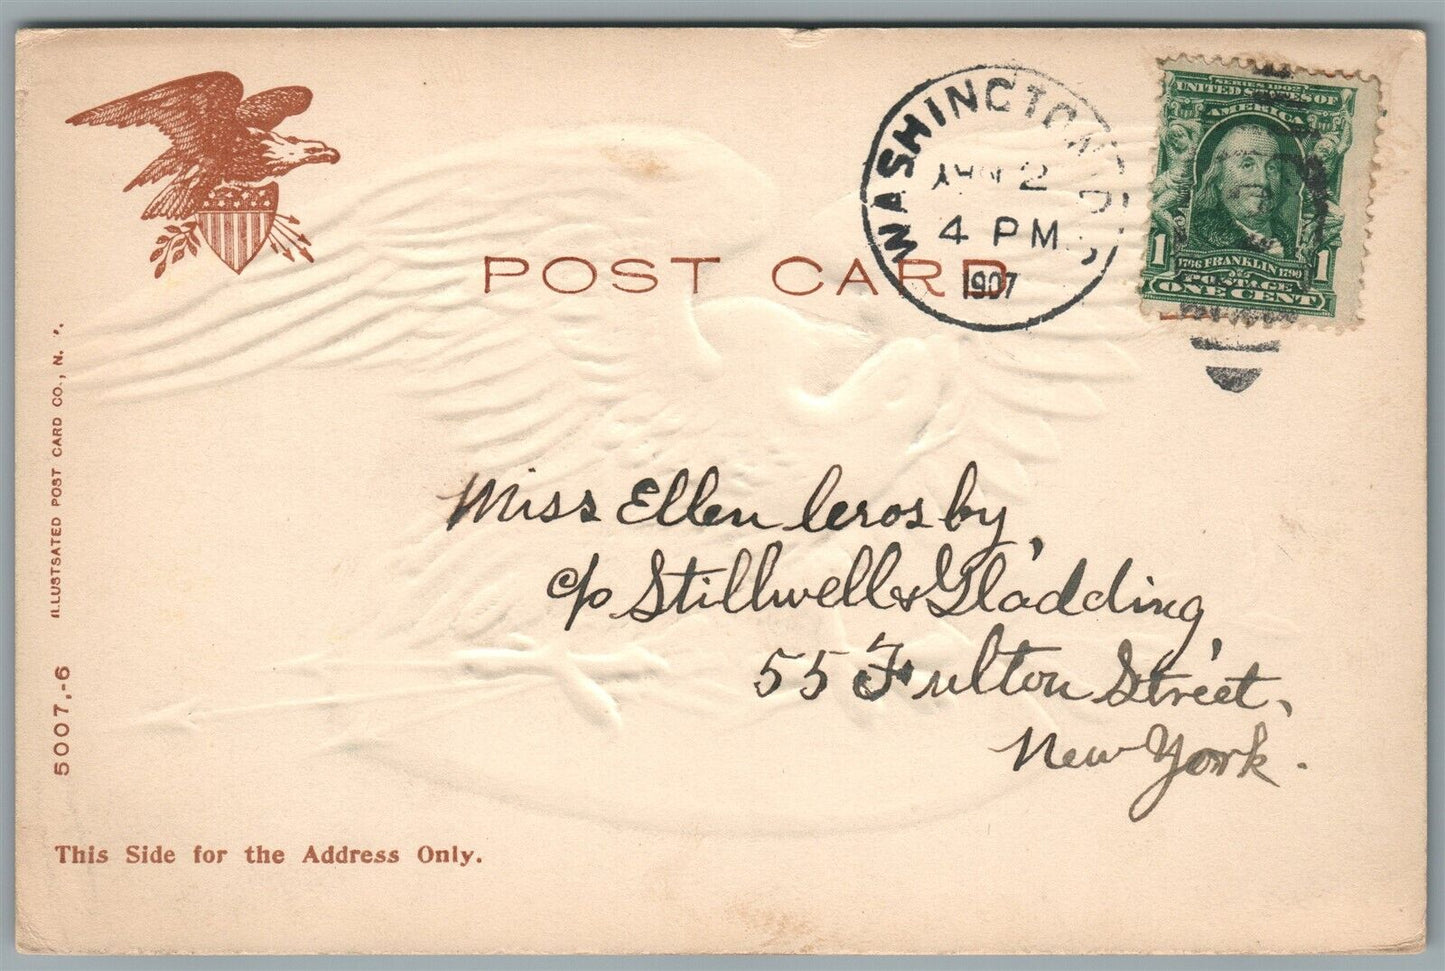 POST CARD
WASHINGTON, D.C.
2
4 PM
1907
SERIES 1902
UNITED STATES OF
AMERICA
1 1706 FRANKLIN 1790 1
POSTAGE
ONE CENT
Miss Ellen Crosby,
c/o Stillwell & Gladding,
55 Fulton Street,
New York.
ILLUSTSATED POST CARD CO., N.
5007,-6
This Side for the Address Only.